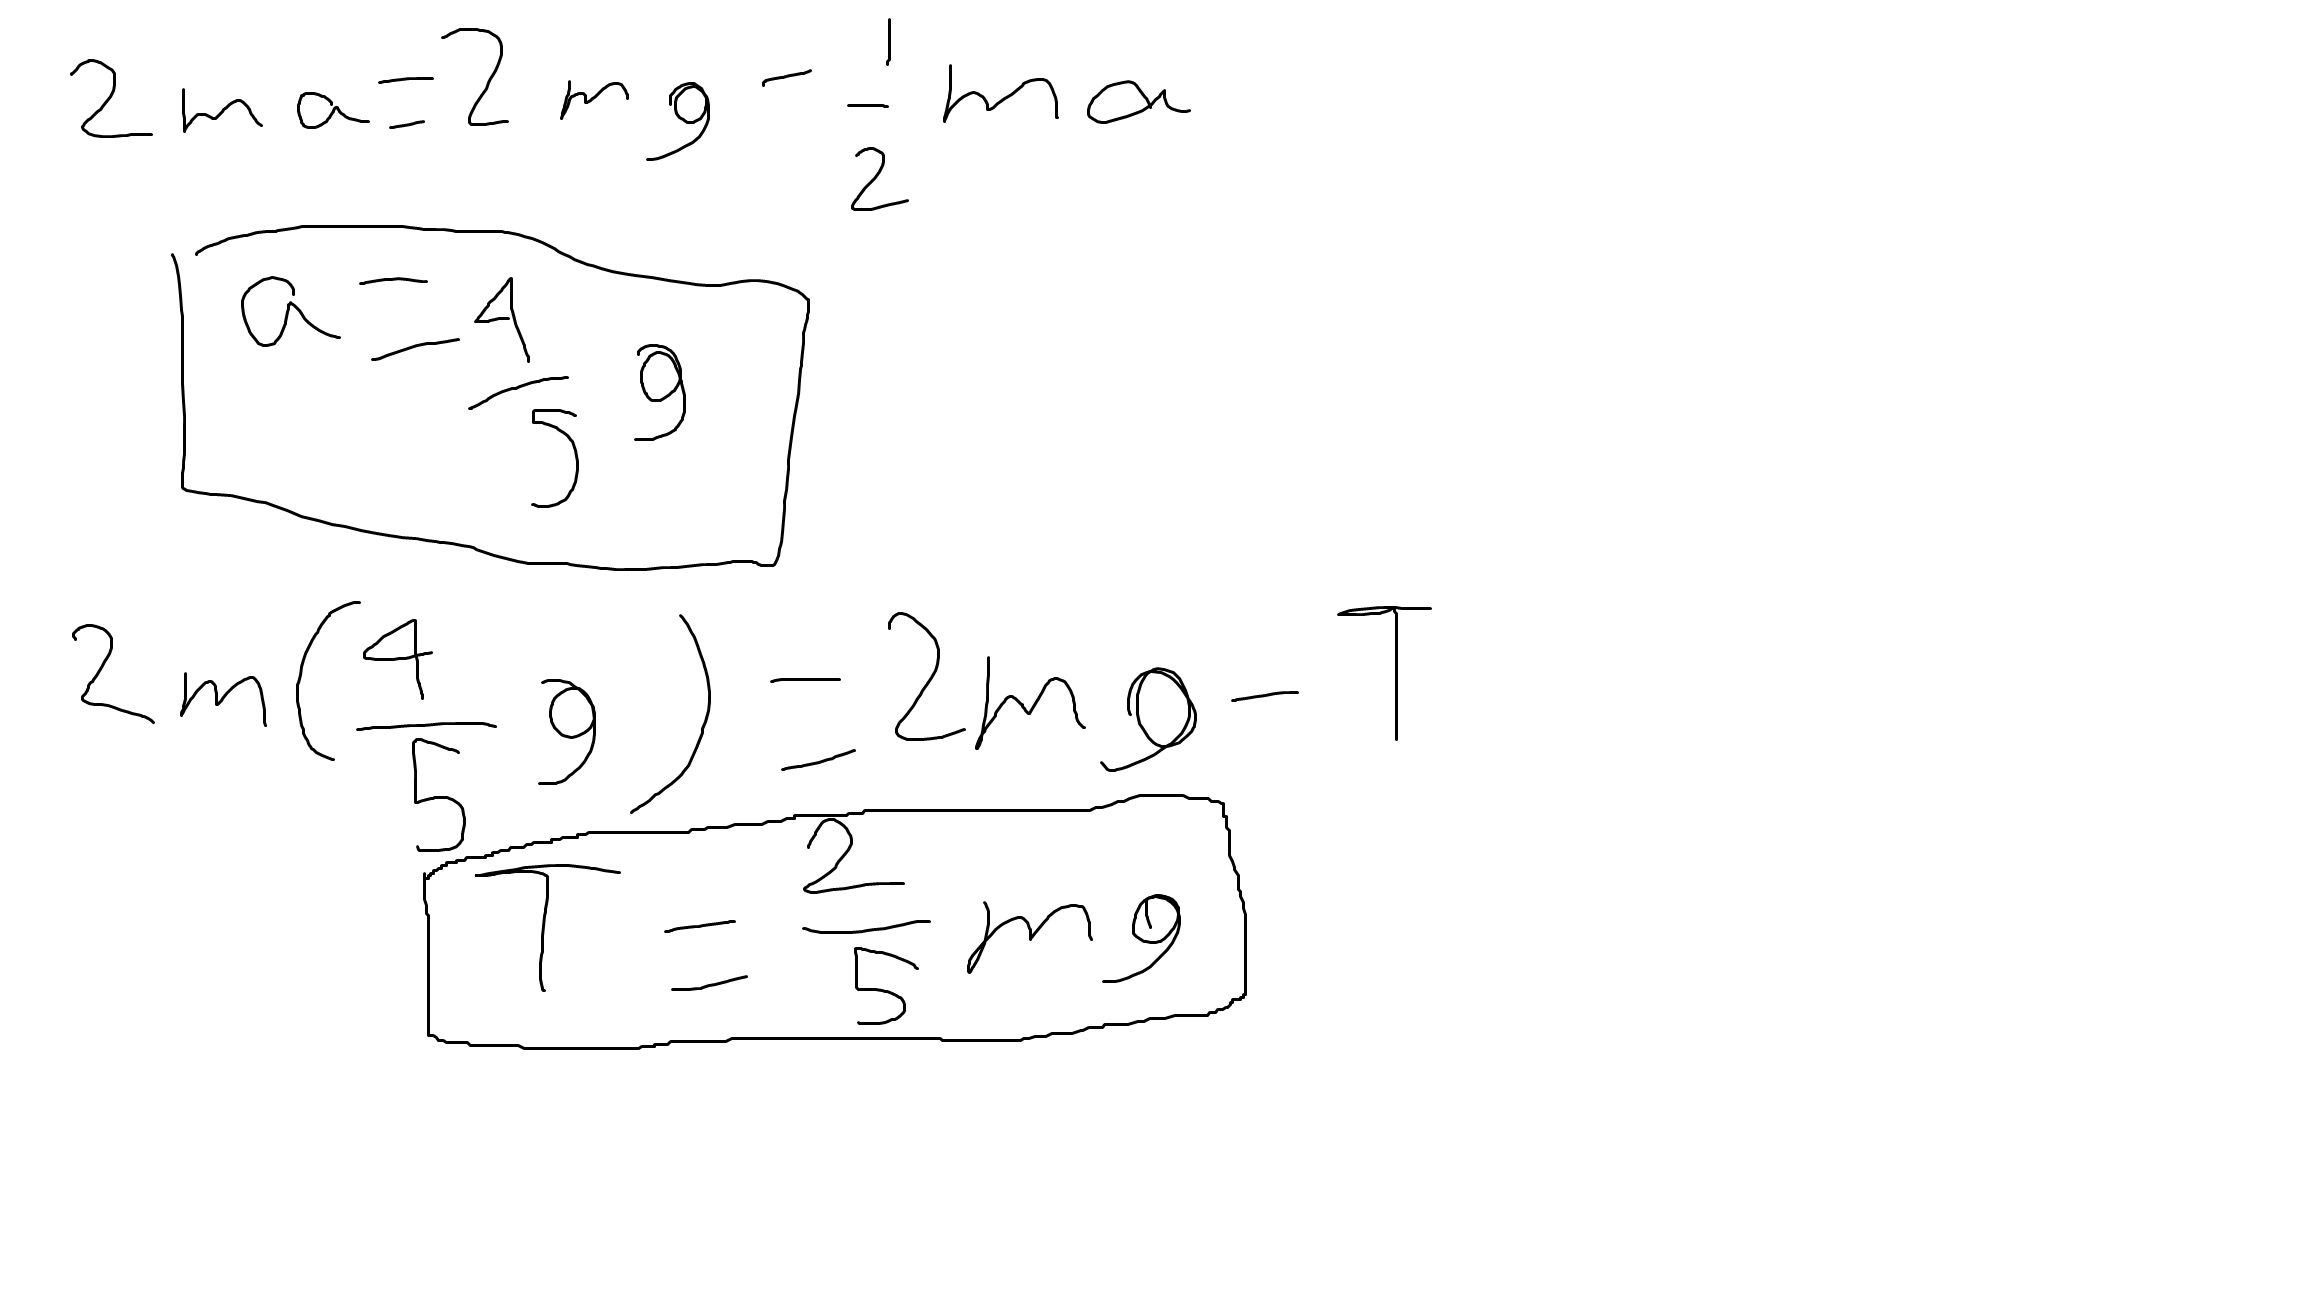 2ma = 2mg - 1/2 ma
a = 4/5 g
2m(4/5 g) = 2mg - T
T = 2/5 mg